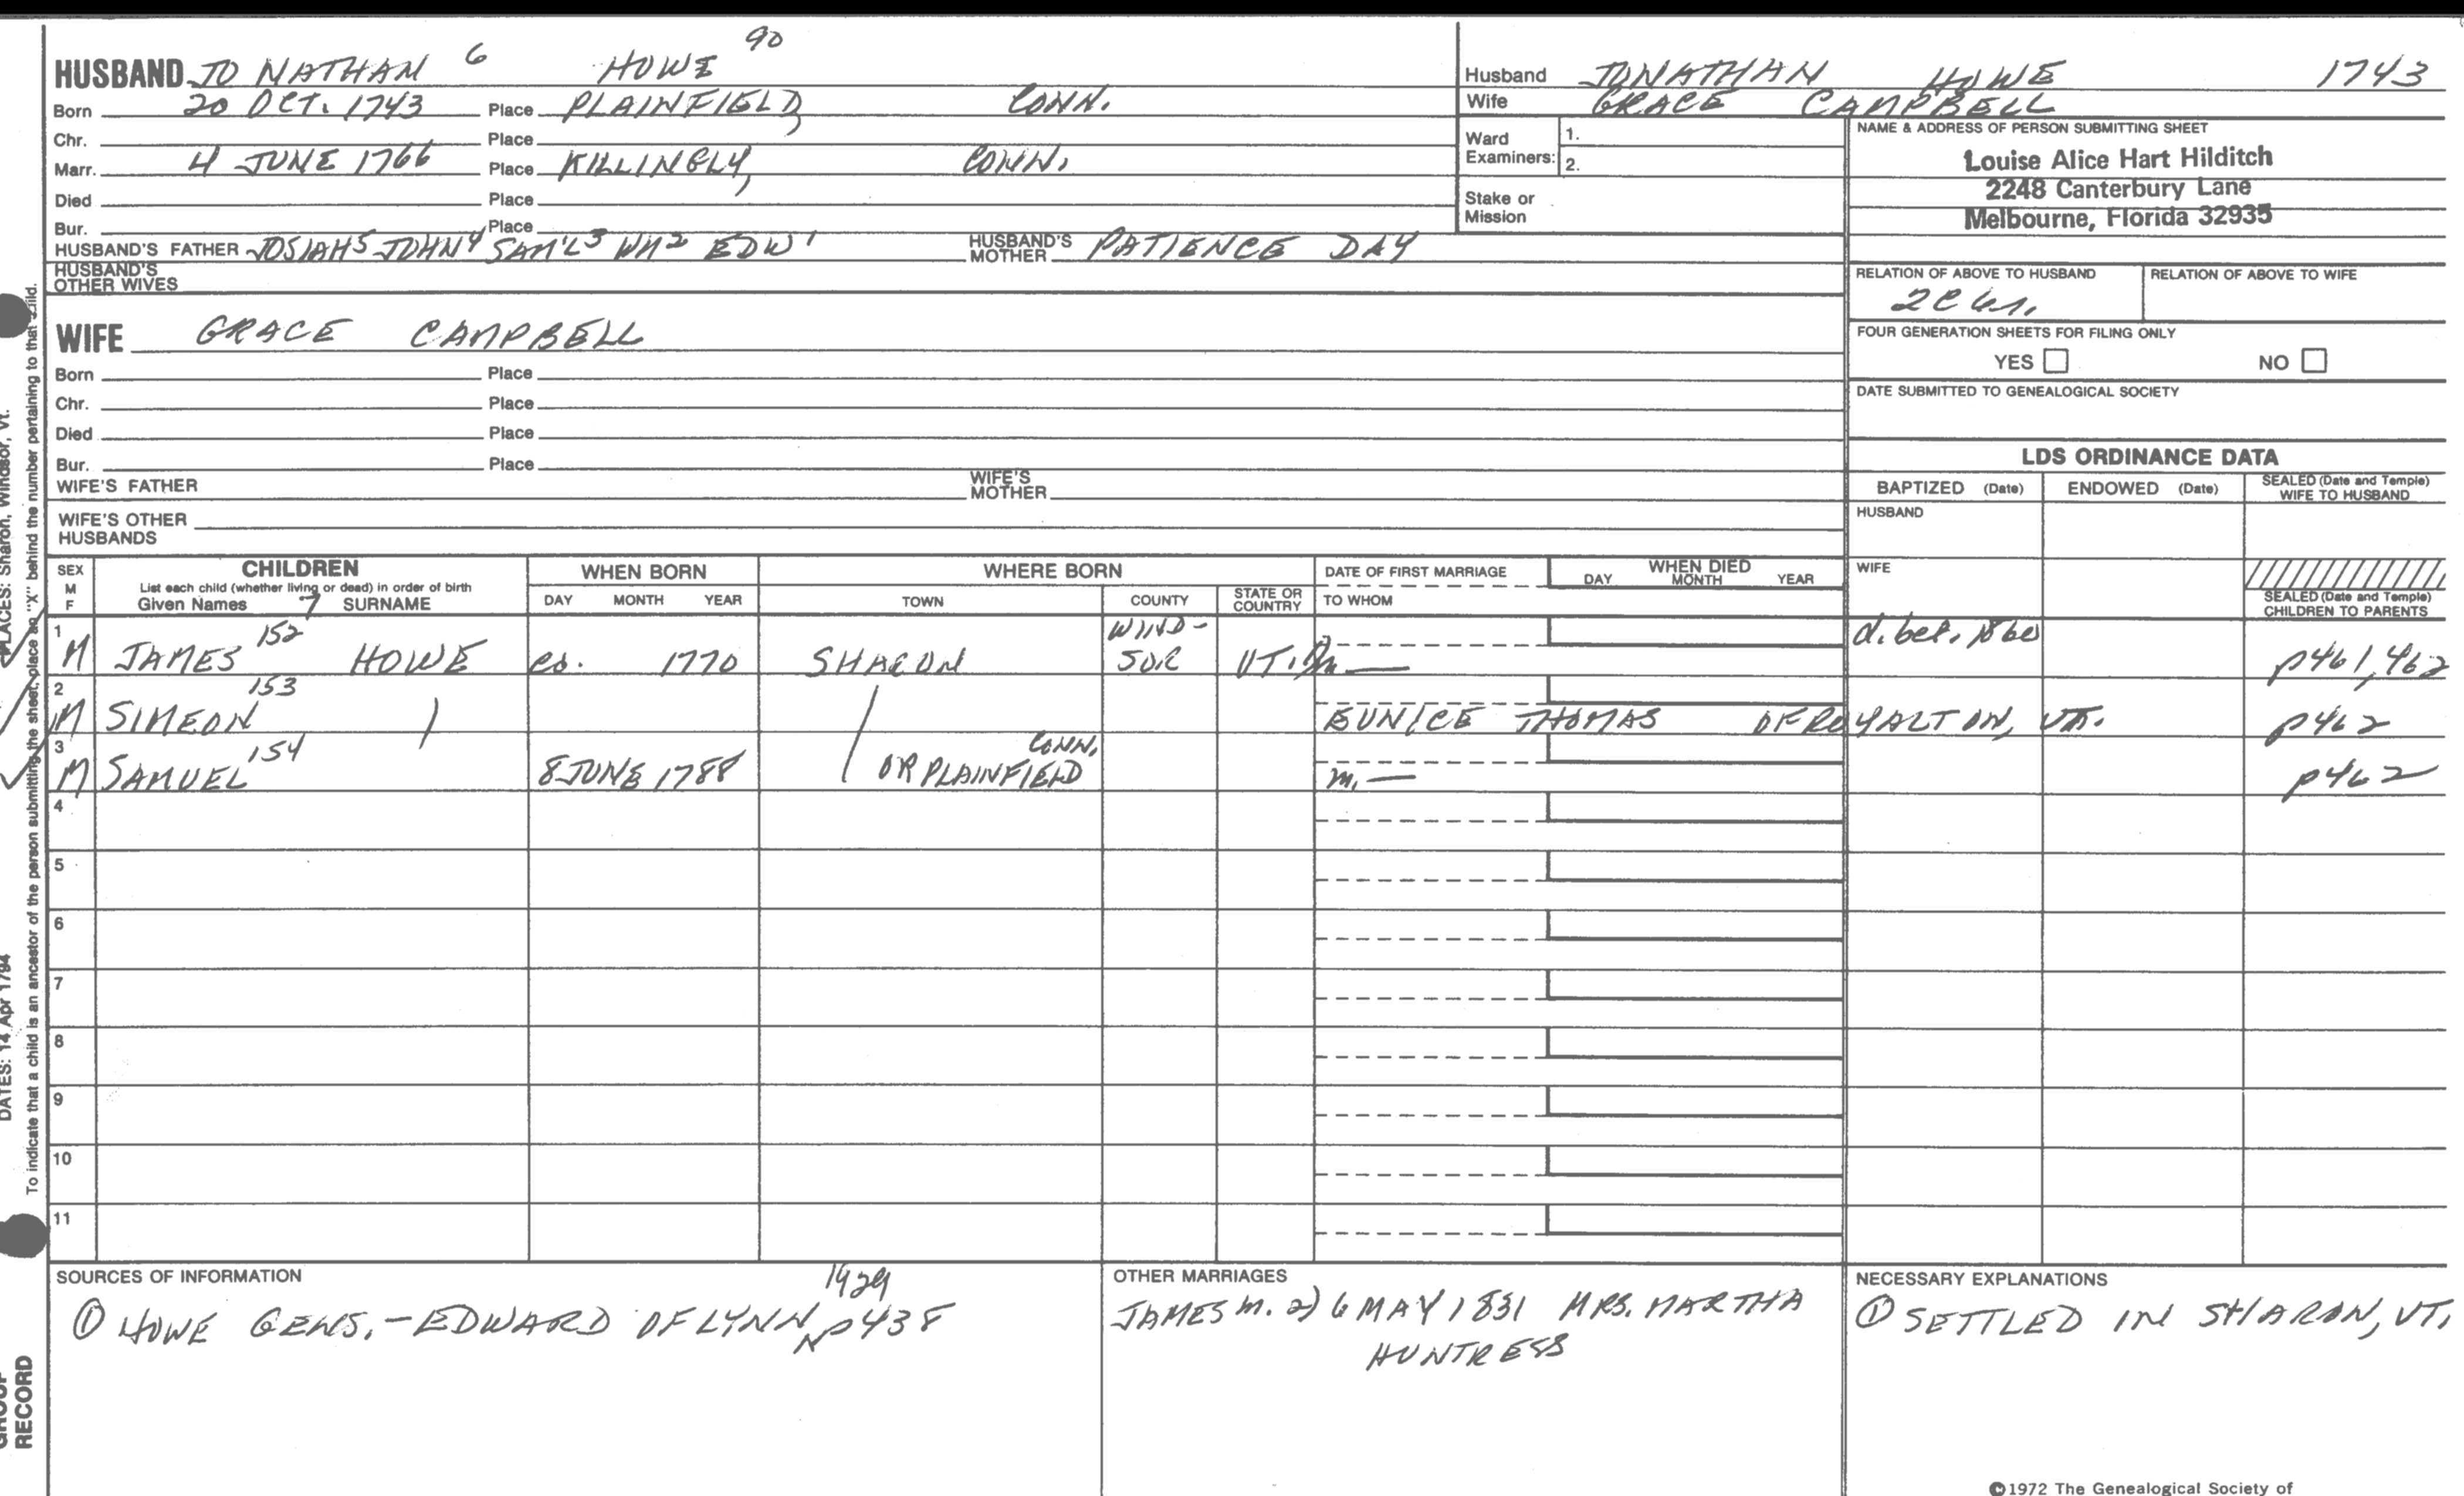 HUSBAND JONATHAN 6 HOWE 90
Born 20 OCT. 1743 Place PLAINFIELD, CONN.
Chr. Place
Marr. 4 JUNE 1766 Place KILLINGLY, CONN.
Died Place
Bur. Place
HUSBAND'S FATHER JOSIAH5 JOHN4 SAM'L3 WM2 EDW1 HUSBAND'S MOTHER PATIENCE DAY
HUSBAND'S OTHER WIVES
WIFE GRACE CAMPBELL
Born Place
Chr. Place
Died Place
Bur. Place
WIFE'S FATHER WIFE'S MOTHER
WIFE'S OTHER HUSBANDS
Husband JONATHAN HOWE 1743
Wife GRACE CAMPBELL
Ward Examiners: 1.
2.
Stake or Mission
NAME & ADDRESS OF PERSON SUBMITTING SHEET
Louise Alice Hart Hilditch
2248 Canterbury Lane
Melbourne, Florida 32935
RELATION OF ABOVE TO HUSBAND RELATION OF ABOVE TO WIFE
FOUR GENERATION SHEETS FOR FILING ONLY
YES NO
DATE SUBMITTED TO GENEALOGICAL SOCIETY
LDS ORDINANCE DATA
BAPTIZED (Date) ENDOWED (Date) SEALED (Date and Temple) WIFE TO HUSBAND
HUSBAND
WIFE
SEALED (Date and Temple) CHILDREN TO PARENTS
SEX M F
CHILDREN
List each child (whether living or dead) in order of birth
Given Names 7 SURNAME
WHEN BORN
DAY MONTH YEAR
WHERE BORN
TOWN COUNTY STATE OR COUNTRY
DATE OF FIRST MARRIAGE
TO WHOM
WHEN DIED
DAY MONTH YEAR
1 M JAMES 152 HOWE ca. 1770 SHARON WIND-SOR VT. m. — d. bef. 1860 p461, 462
2 M SIMEON 153 EUNICE THOMAS OF ROYALTON, VT. p462
3 M SAMUEL 154 8 JUNE 1788 OR PLAINFIELD CONN. m. — p462
4
5
6
7
8
9
10
11
SOURCES OF INFORMATION
① HOWE GENS. - EDWARD OF LYNN 1929 p438
OTHER MARRIAGES
JAMES m. 2) 6 MAY 1831 MRS. MARTHA
HUNTRESS
NECESSARY EXPLANATIONS
① SETTLED IN SHARON, VT.
©1972 The Genealogical Society of
PLACES: Sharon, Windsor, Vt.
DATES: 14 Apr 1794
To indicate that a child is an ancestor of the person submitting the sheet, place an "X" behind the number pertaining to that child.
GROUP
RECORD